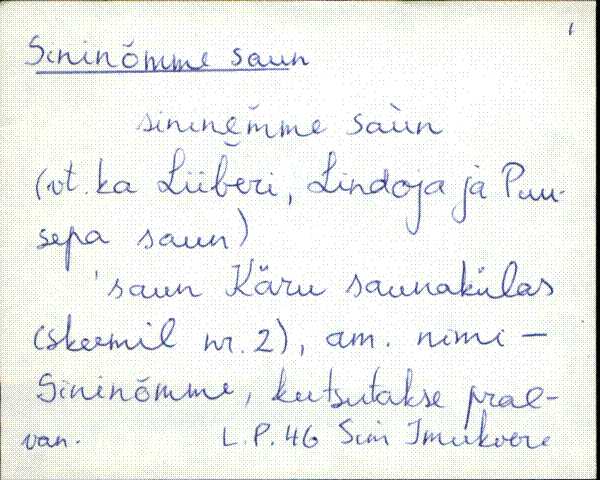 1
Sininõmme saun
sininẽmme saùn
(vt. ka Liiberi, Lindoja ja Puu-
sepa saun)
'saun Käru saunakülas
(skeemil nr. 2), am. nimi –
Sininõmme, kutsutakse prae-
van. L.P. 46 Sim Imukvere